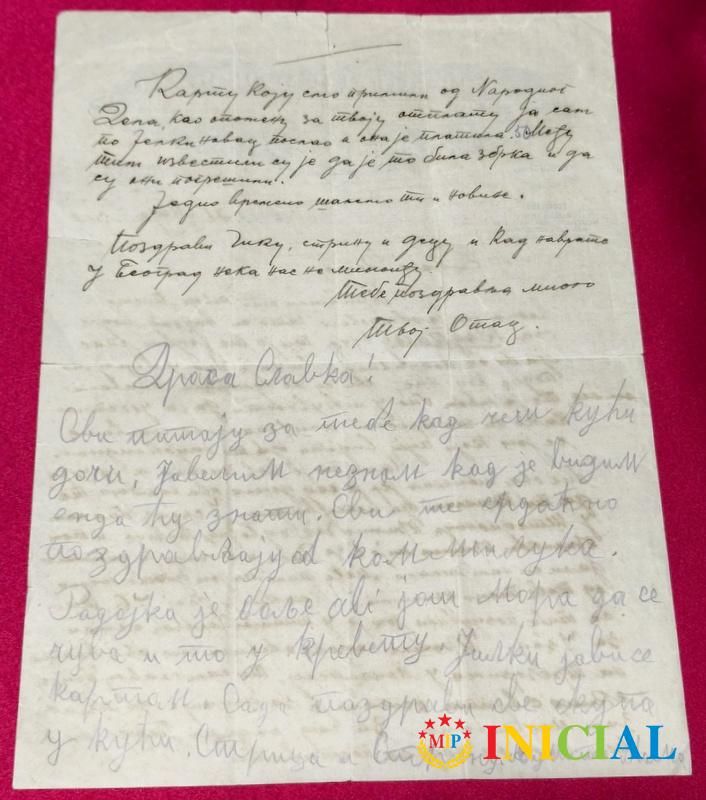 Карту коју смо примили од Народног
Дела, као опомену за твоју отплату ја сам
по Јелки новац послао и она је платила. 50 Међу
тим известили су је да је то била збрка и да
су они погрешили.
Једно времено шаљемо ти и новине.
Поздрави Чику, стрину и децу и кад наврате
у Београд нека нас не
Тебе поздравља много
твој Отац.
Драга Славка!
Сви питају за тебе кад ћеш кући
доћи, Ја велим незнам кад је видим
онда ћу знати. Сви те срдачно
поздрављају од
Радојка је боље али још мора да се
чува и то у кревету. Јилки јави се
картом. Сада поздрави све скупа
у кући. Стрица и Стрину
MP INICIAL